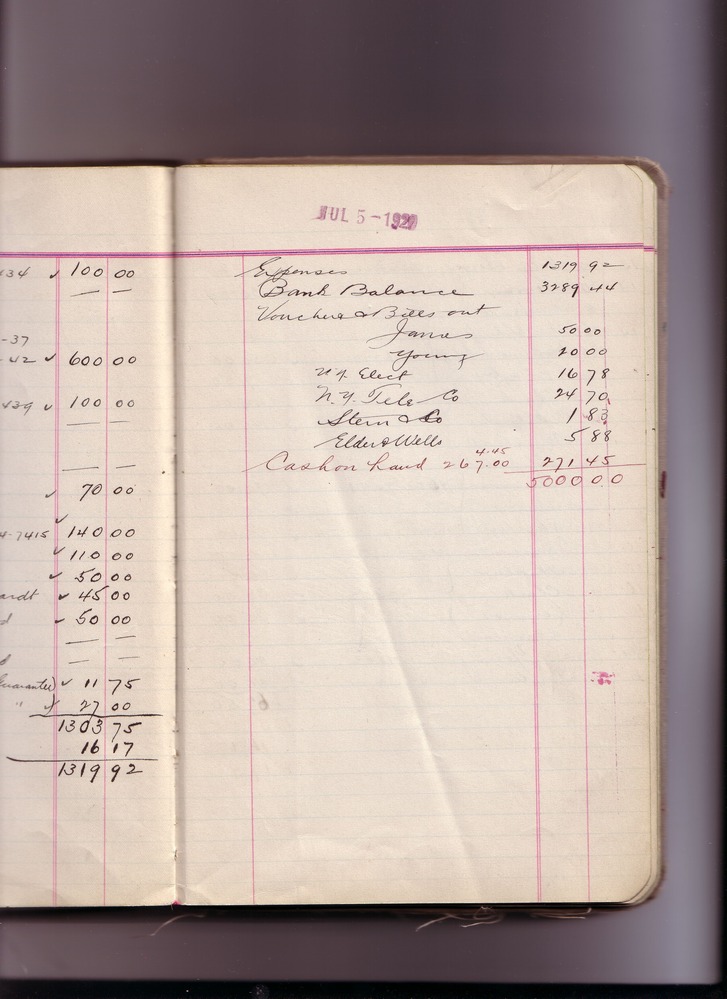 434 ✓ 100 00
— —
-37
42 ✓ 600 00
439 ✓ 100 00
— —
— —
✓ 70 00
✓
4-7415 140 00
✓ 110 00
✓ 50 00
ardt ✓ 45 00
d ✓ 50 00
— —
d — —
Guarantee) ✓ 11 75
" ) 27 00
1303 75
16 17
1319 92
JUL 5 - 1920
Expenses 1319 92
Bank Balance 3289 44
Vouchers & Bills out
James 50 00
Young 20 00
N.Y. Elect 16 78
N.Y. Tele Co 24 70
Stern & Co 1 83
Elder & Wells 5 88
4.45
Cash on hand 267.00 271 45
5000 00